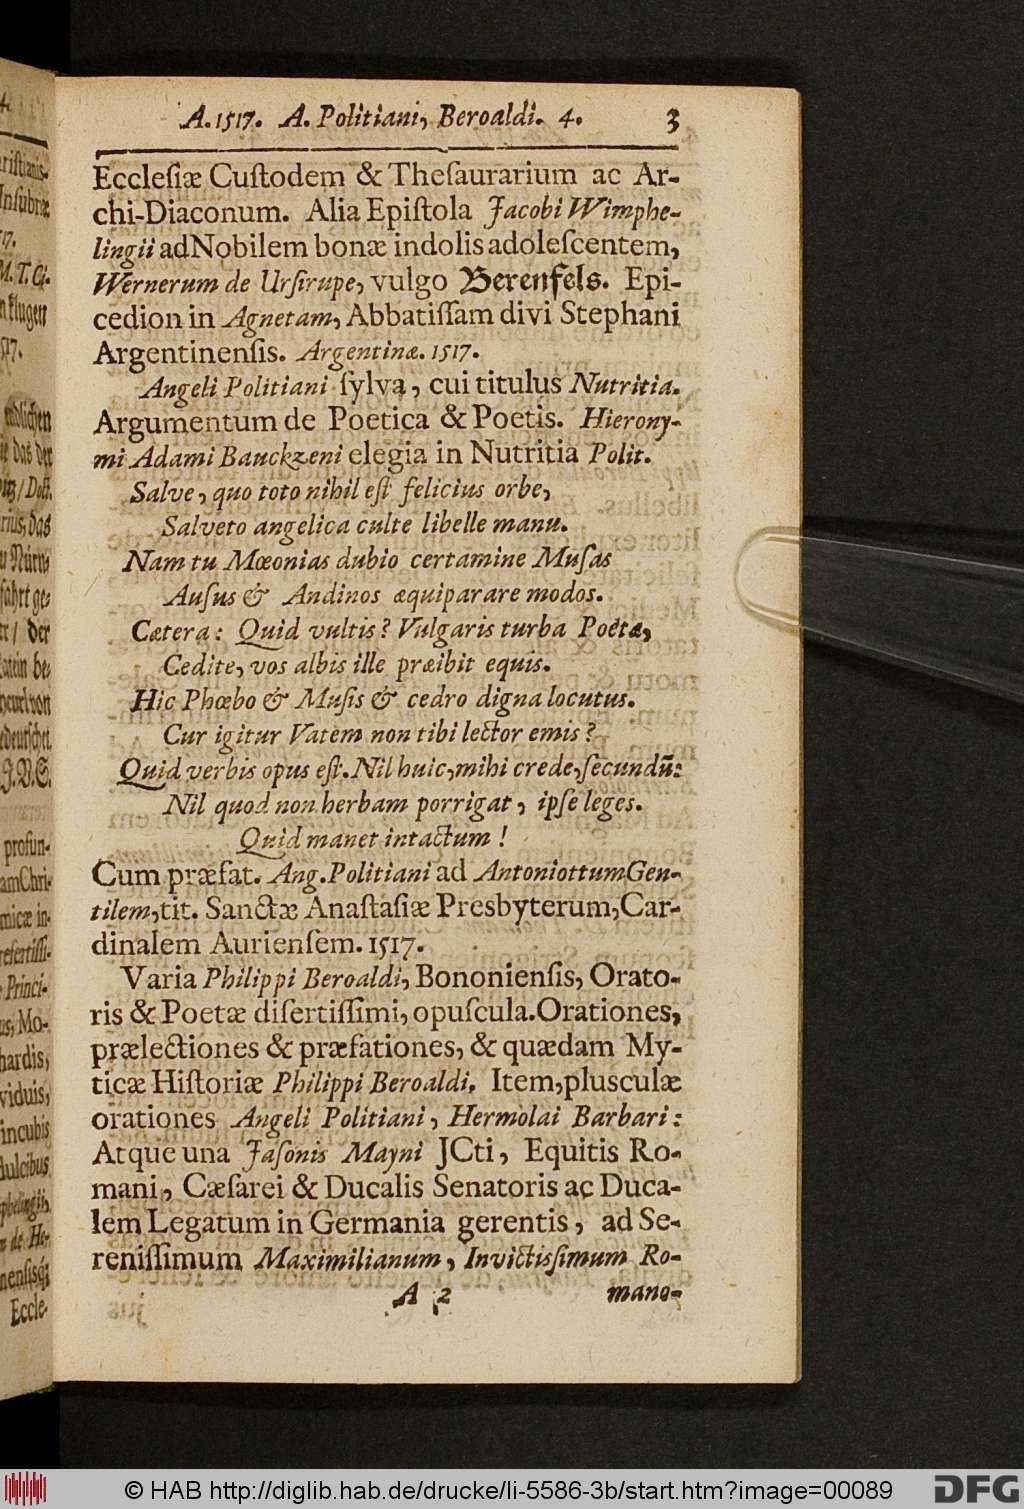 A. 1517. A. Politiani, Beroaldi. 4. 3
Ecclesiæ Custodem & Thesaurarium ac Ar-
chi-Diaconum. Alia Epistola Jacobi Wimphe-
lingii ad Nobilem bonæ indolis adolescentem,
Wernerum de Ursirupe, vulgo Berenfels. Epi-
cedion in Agnetam, Abbatissam divi Stephani
Argentinensis. Argentinæ. 1517.
Angeli Politiani sylva, cui titulus Nutritia.
Argumentum de Poetica & Poetis. Hierony-
mi Adami Bauckzeni elegia in Nutritia Polit.
Salve, quo toto nihil est felicius orbe,
Salveto angelica culte libelle manu.
Nam tu Mœonias dubio certamine Musas
Ausus & Andinos æquiparare modos.
Cætera: Quid vultis? Vulgaris turba Poëtæ,
Cedite, vos albis ille præibit equis.
Hic Phœbo & Musis & cedro digna locutus.
Cur igitur Vatem non tibi lector emis?
Quid verbis opus est. Nil huic, mihi crede, secundũ:
Nil quod non herbam porrigat, ipse leges.
Quid manet intactum!
Cum præfat. Ang. Politiani ad Antoniottum Gen-
tilem, tit. Sanctæ Anastasiæ Presbyterum, Car-
dinalem Auriensem. 1517.
Varia Philippi Beroaldi, Bononiensis, Orato-
ris & Poetæ disertissimi, opuscula. Orationes,
prælectiones & præfationes, & quædam My-
ticæ Historiæ Philippi Beroaldi. Item, plusculæ
orationes Angeli Politiani, Hermolai Barbari:
Atque una Jasonis Mayni JCti, Equitis Ro-
mani, Cæsarei & Ducalis Senatoris ac Duca-
lem Legatum in Germania gerentis, ad Se-
renissimum Maximilianum, Invictissimum Ro-
A 2 mano-
© HAB http://diglib.hab.de/drucke/li-5586-3b/start.htm?image=00089
DFG